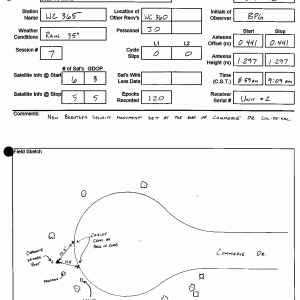 Station Name WC 365
Location of Other Recvr's WC 360
Initials of Observer BPG
Weather Conditions RAIN 35°
Personnel JO
Start Stop
Antenna Offset (m) 0.441 0.441
Session # 7
L1 L2
Cycle Slips 0 0
Antenna Height (m) 1.297 1.297
# of Sat's GDOP
Satellite Info @ Start 6 3
Sat's With Less Data
Time (C.S.T.) 8:59AM 9:09AM
Satellite Info @ Stop 5 5
Epochs Recorded 120
Receiver Serial # UNIT #2
Comments: NEW MONUMENT SET AT THE END OF COMMERCE DR. CUL-DE-SAC.
Field Sketch
COMMERCE DR.